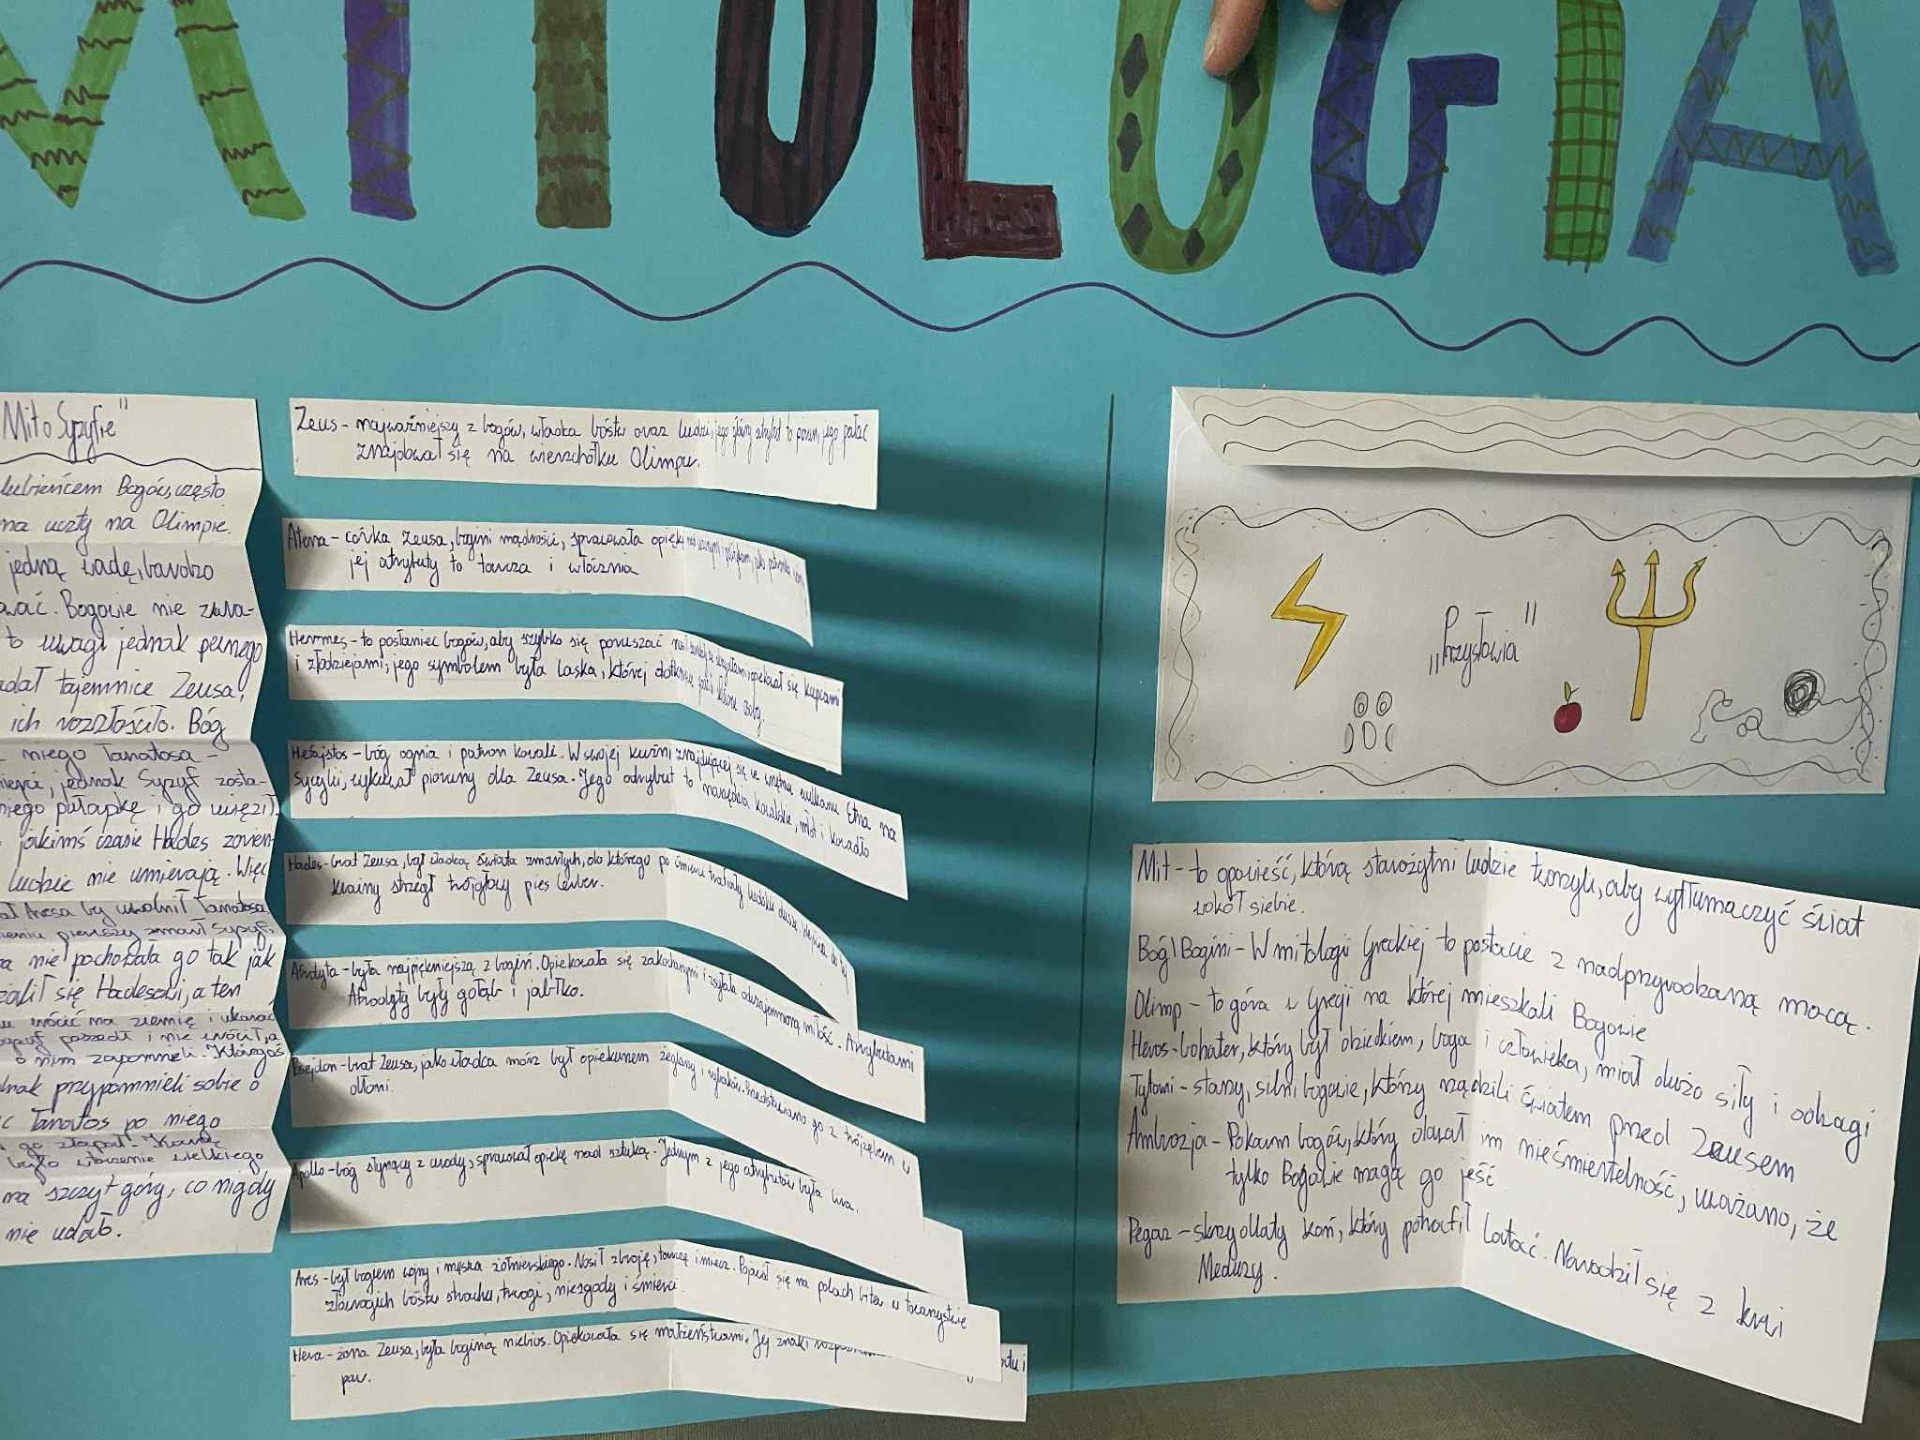 MITOLOGIA
Mit o Syzyfie"
lubieńcem Bogów, często
na uczty na Olimpie.
jedną wadę, bardzo
wać. Bogowie nie zwra-
to uwagi jednak pewnego
adał tajemnice Zeusa,
ich rozzłościło. Bóg
niego Tanatosa -
jednak Syzyf zosta-
niego pułapkę i go uwięził
jakimś czasie Hades zorien-
ludzie nie umierają. Więc
Aresa by uwolnił Tanatosa
pierwszy zmarł Syzyf,
nie pochowała go tak jak
żalił się Hadesowi, a ten
wrócić na ziemię i ukarać
poszedł i nie wrócił, a
o nim zapomnieli. Któregoś
dnak przypomnieli sobie o
c Tanatos po niego
i go złapał. Karą
było wtoczenie wielkiego
na szczyt góry, co nigdy
nie udało.
Zeus - najważniejszy z bogów, władca bóstw oraz ludzi, jego główny atrybut to piorun, jego pałac
znajdował się na wierzchołku Olimpu.
Atena - córka Zeusa, bogini mądrości, sprawowała opiekę nad
jej atrybuty to tarcza i włócznia
Hermes - to posłaniec bogów, aby szybko się poruszać opiekował się kupcami
i złodziejami, jego symbolem była laska, której
Hefajstos - bóg ognia i patron kowali. W swojej kuźni znajdującej się we wnętrzu wulkanu Etna na
Sycylii, wykuwał pioruny dla Zeusa. Jego atrybut to narzędzia kowalskie, młot i kowadło
Hades - brat Zeusa, był władcą świata zmarłych, do którego po śmierci trafiały ludzkie dusze. Wejścia do tej
krainy strzegł trójgłowy pies Cerber.
Afrodyta - była najpiękniejszą z bogiń. Opiekowała się zakochanymi i zsyłała odwzajemnioną miłość. Atrybutami
Afrodyty były gołąb i jabłko.
Posejdon - brat Zeusa, jako władca mórz był opiekunem żeglarzy i rybaków. Przedstawiano go z trójzębem w
dłoni.
Apollo - bóg słynący z urody, sprawował opiekę nad sztuką. Jednym z jego atrybutów była lira.
Ares - był bogiem wojny i męska żołnierskiego. Nosił zbroję, tarczę i miecz. Pojawiał się na polach bitew w towarzystwie
złowrogich bóstw strachu, trwogi, niezgody i śmierci
Hera - żona Zeusa, była boginią niebios. Opiekowała się małżeństwami. Jej znaki
paw.
„Przysłowia"
Mit - to opowieść, którą starożytni ludzie tworzyli, aby wytłumaczyć świat
wokół siebie.
Bóg/Bogini - W mitologii Greckiej to postacie z nadprzyrodzoną mocą.
Olimp - to góra w Grecji na której mieszkali Bogowie
Heros - bohater, który był dzieckiem, boga i człowieka, miał dużo siły i odwagi
Tytani - starzy, silni bogowie, którzy rządzili światem przed Zeusem
Ambrozja - Pokarm bogów, który dawał im nieśmiertelność, uważano, że
tylko Bogowie mogą go jeść
Pegaz - skrzydlaty koń, który potrafił latać. Narodził się z krwi
Meduzy.